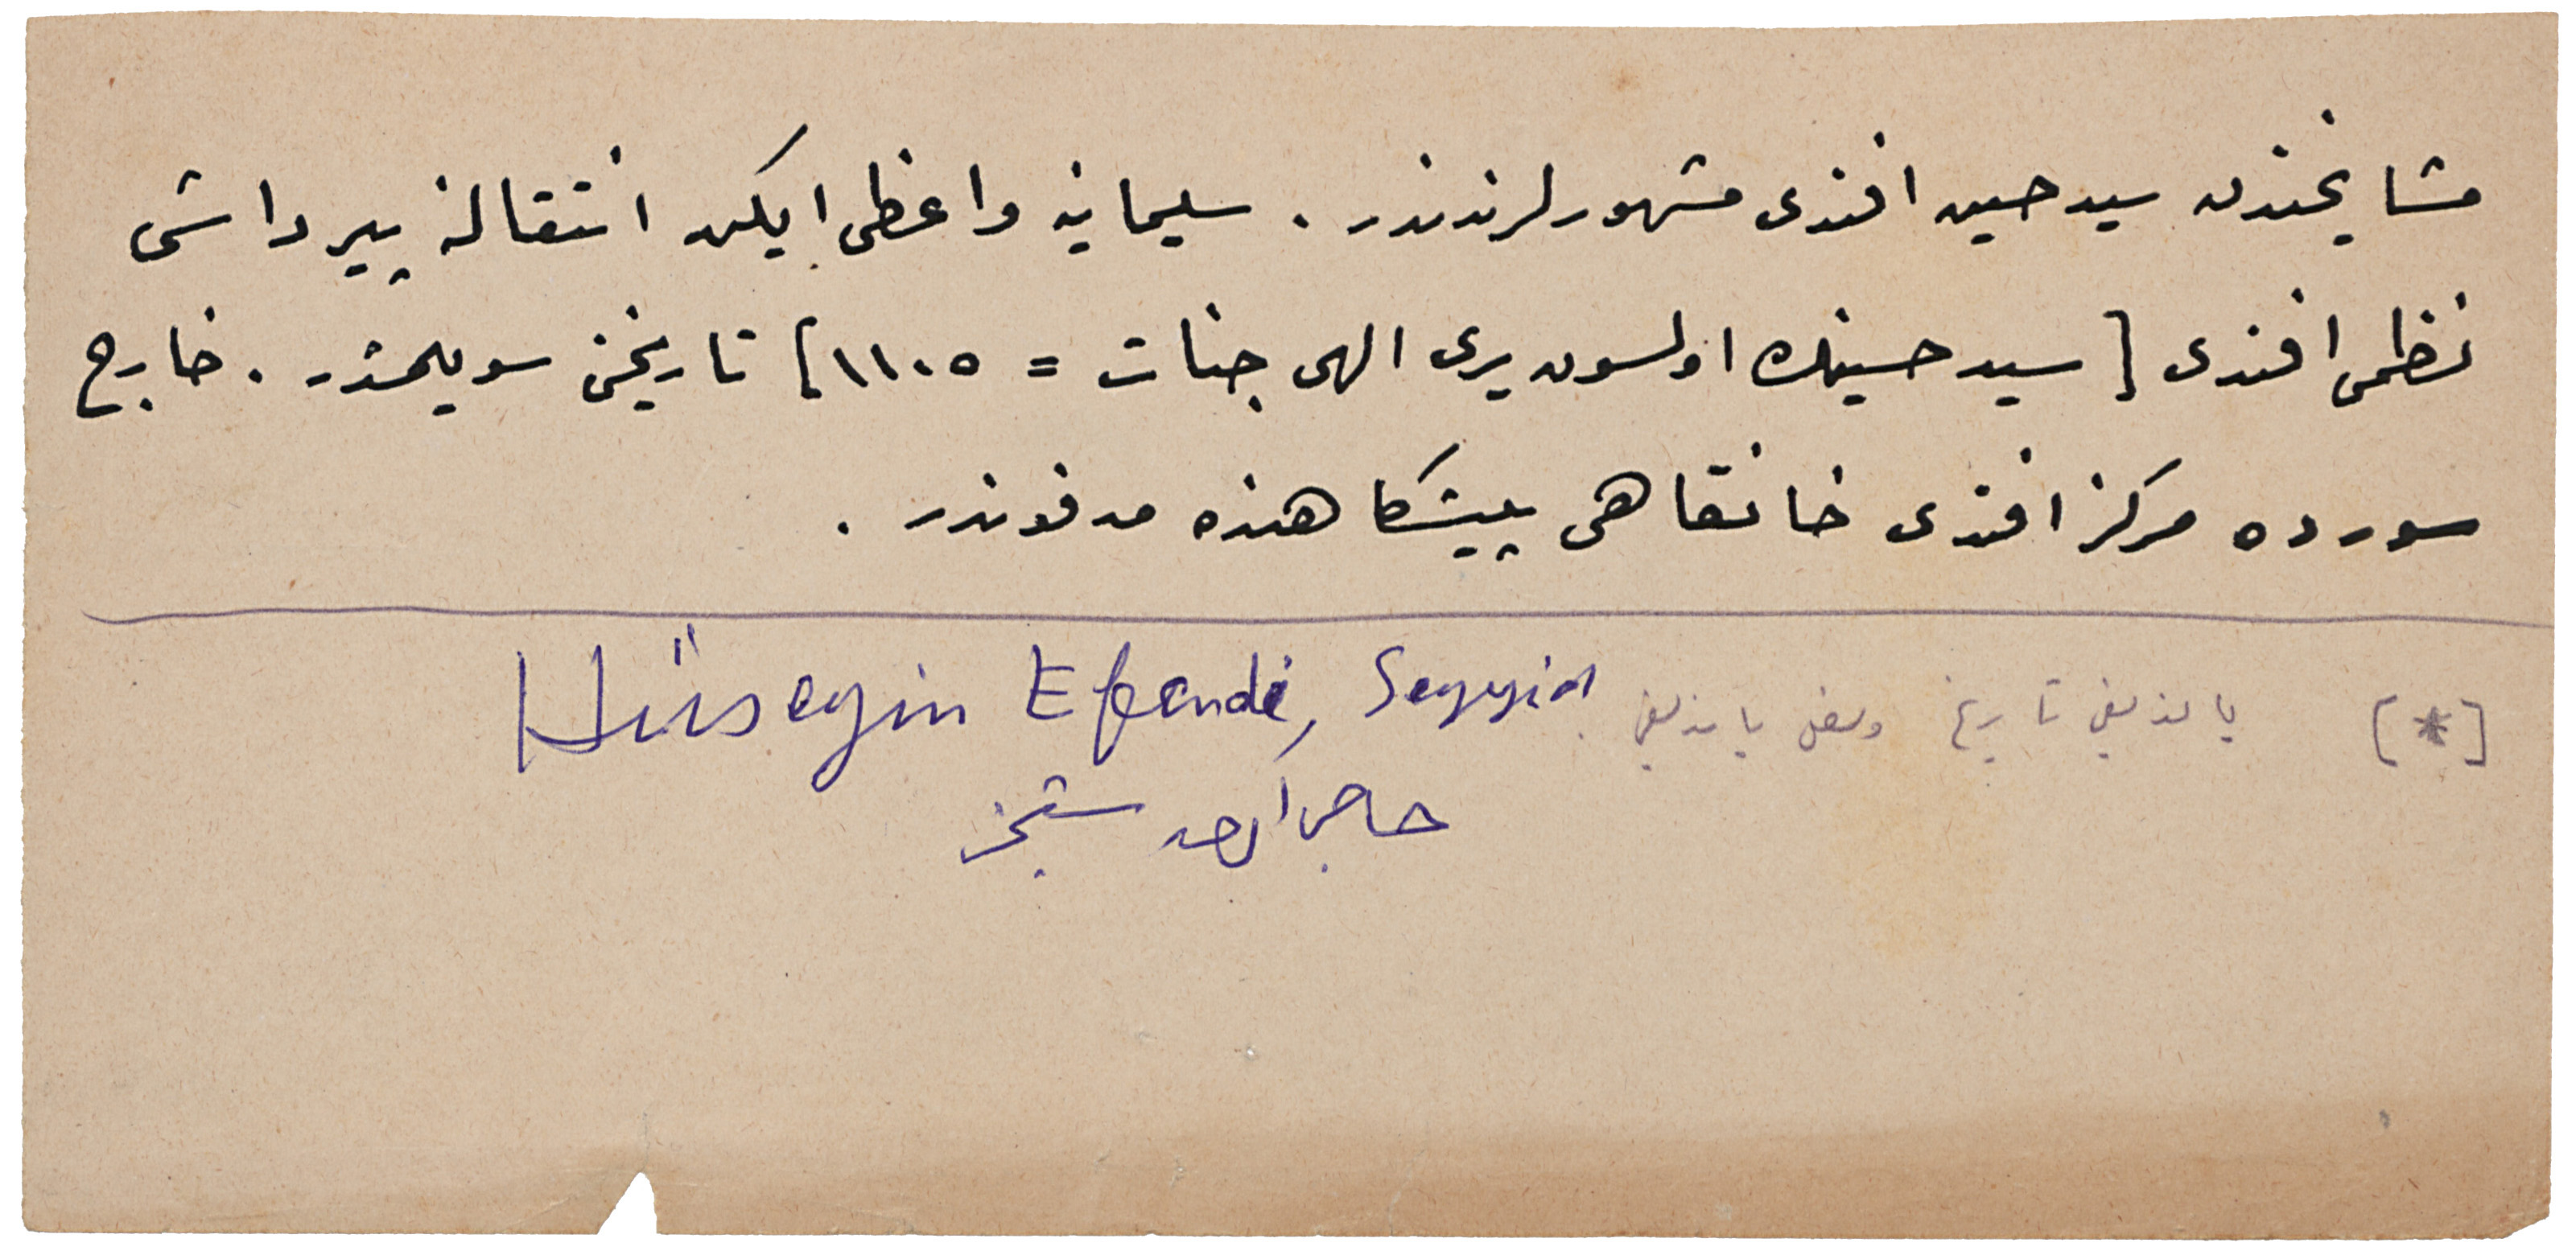 مشایخندن سید حسین افندی مشهورلرندندر . سلیمانیه واعظی ایکن انتقالنه پیرداشی
نظمی افندی [ سید حسینك اولسون یری الهی جنات = ١١٠٥ ] تاریخنی سویلمشدر . خارج
سورده مرکز افندی خانقاهی پیشکاهنده مدفوندر .
Hüseyin Efendi, Seyyid
[*] یازدیغی تاریخ